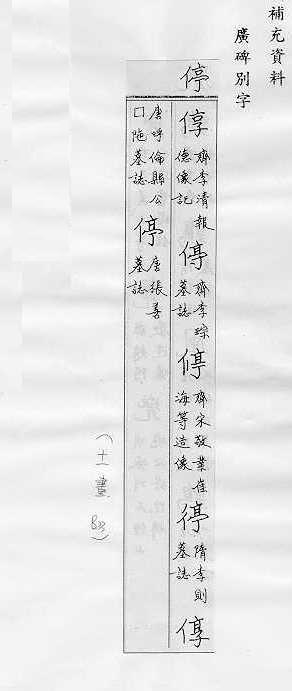 補充資料
廣碑別字
停
停 齊李清報德像記 停 齊李琮墓誌 停 齊宋敬業崔海等造像 停 隋李則墓誌 停
唐呼倫縣公口陁墓誌 停 唐張善墓誌
(十一畫 83)